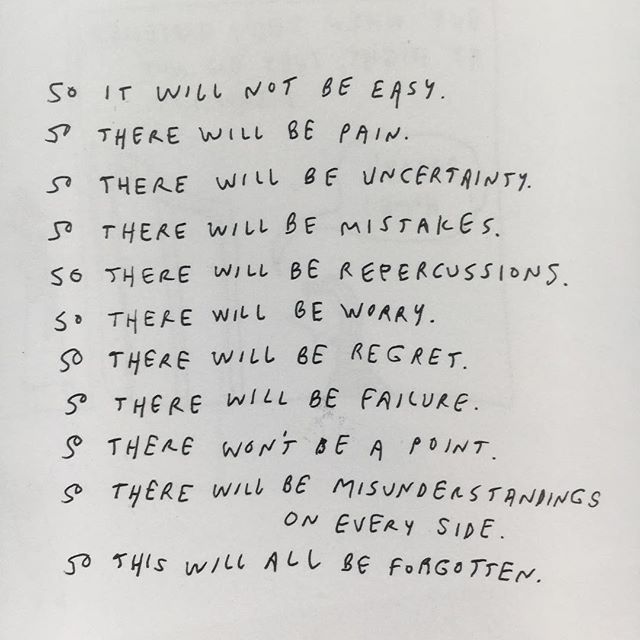 SO IT WILL NOT BE EASY.
SO THERE WILL BE PAIN.
SO THERE WILL BE UNCERTAINTY.
SO THERE WILL BE MISTAKES.
SO THERE WILL BE REPERCUSSIONS.
SO THERE WILL BE WORRY.
SO THERE WILL BE REGRET.
SO THERE WILL BE FAILURE.
SO THERE WON'T BE A POINT.
SO THERE WILL BE MISUNDERSTANDINGS
ON EVERY SIDE.
SO THIS WILL ALL BE FORGOTTEN.